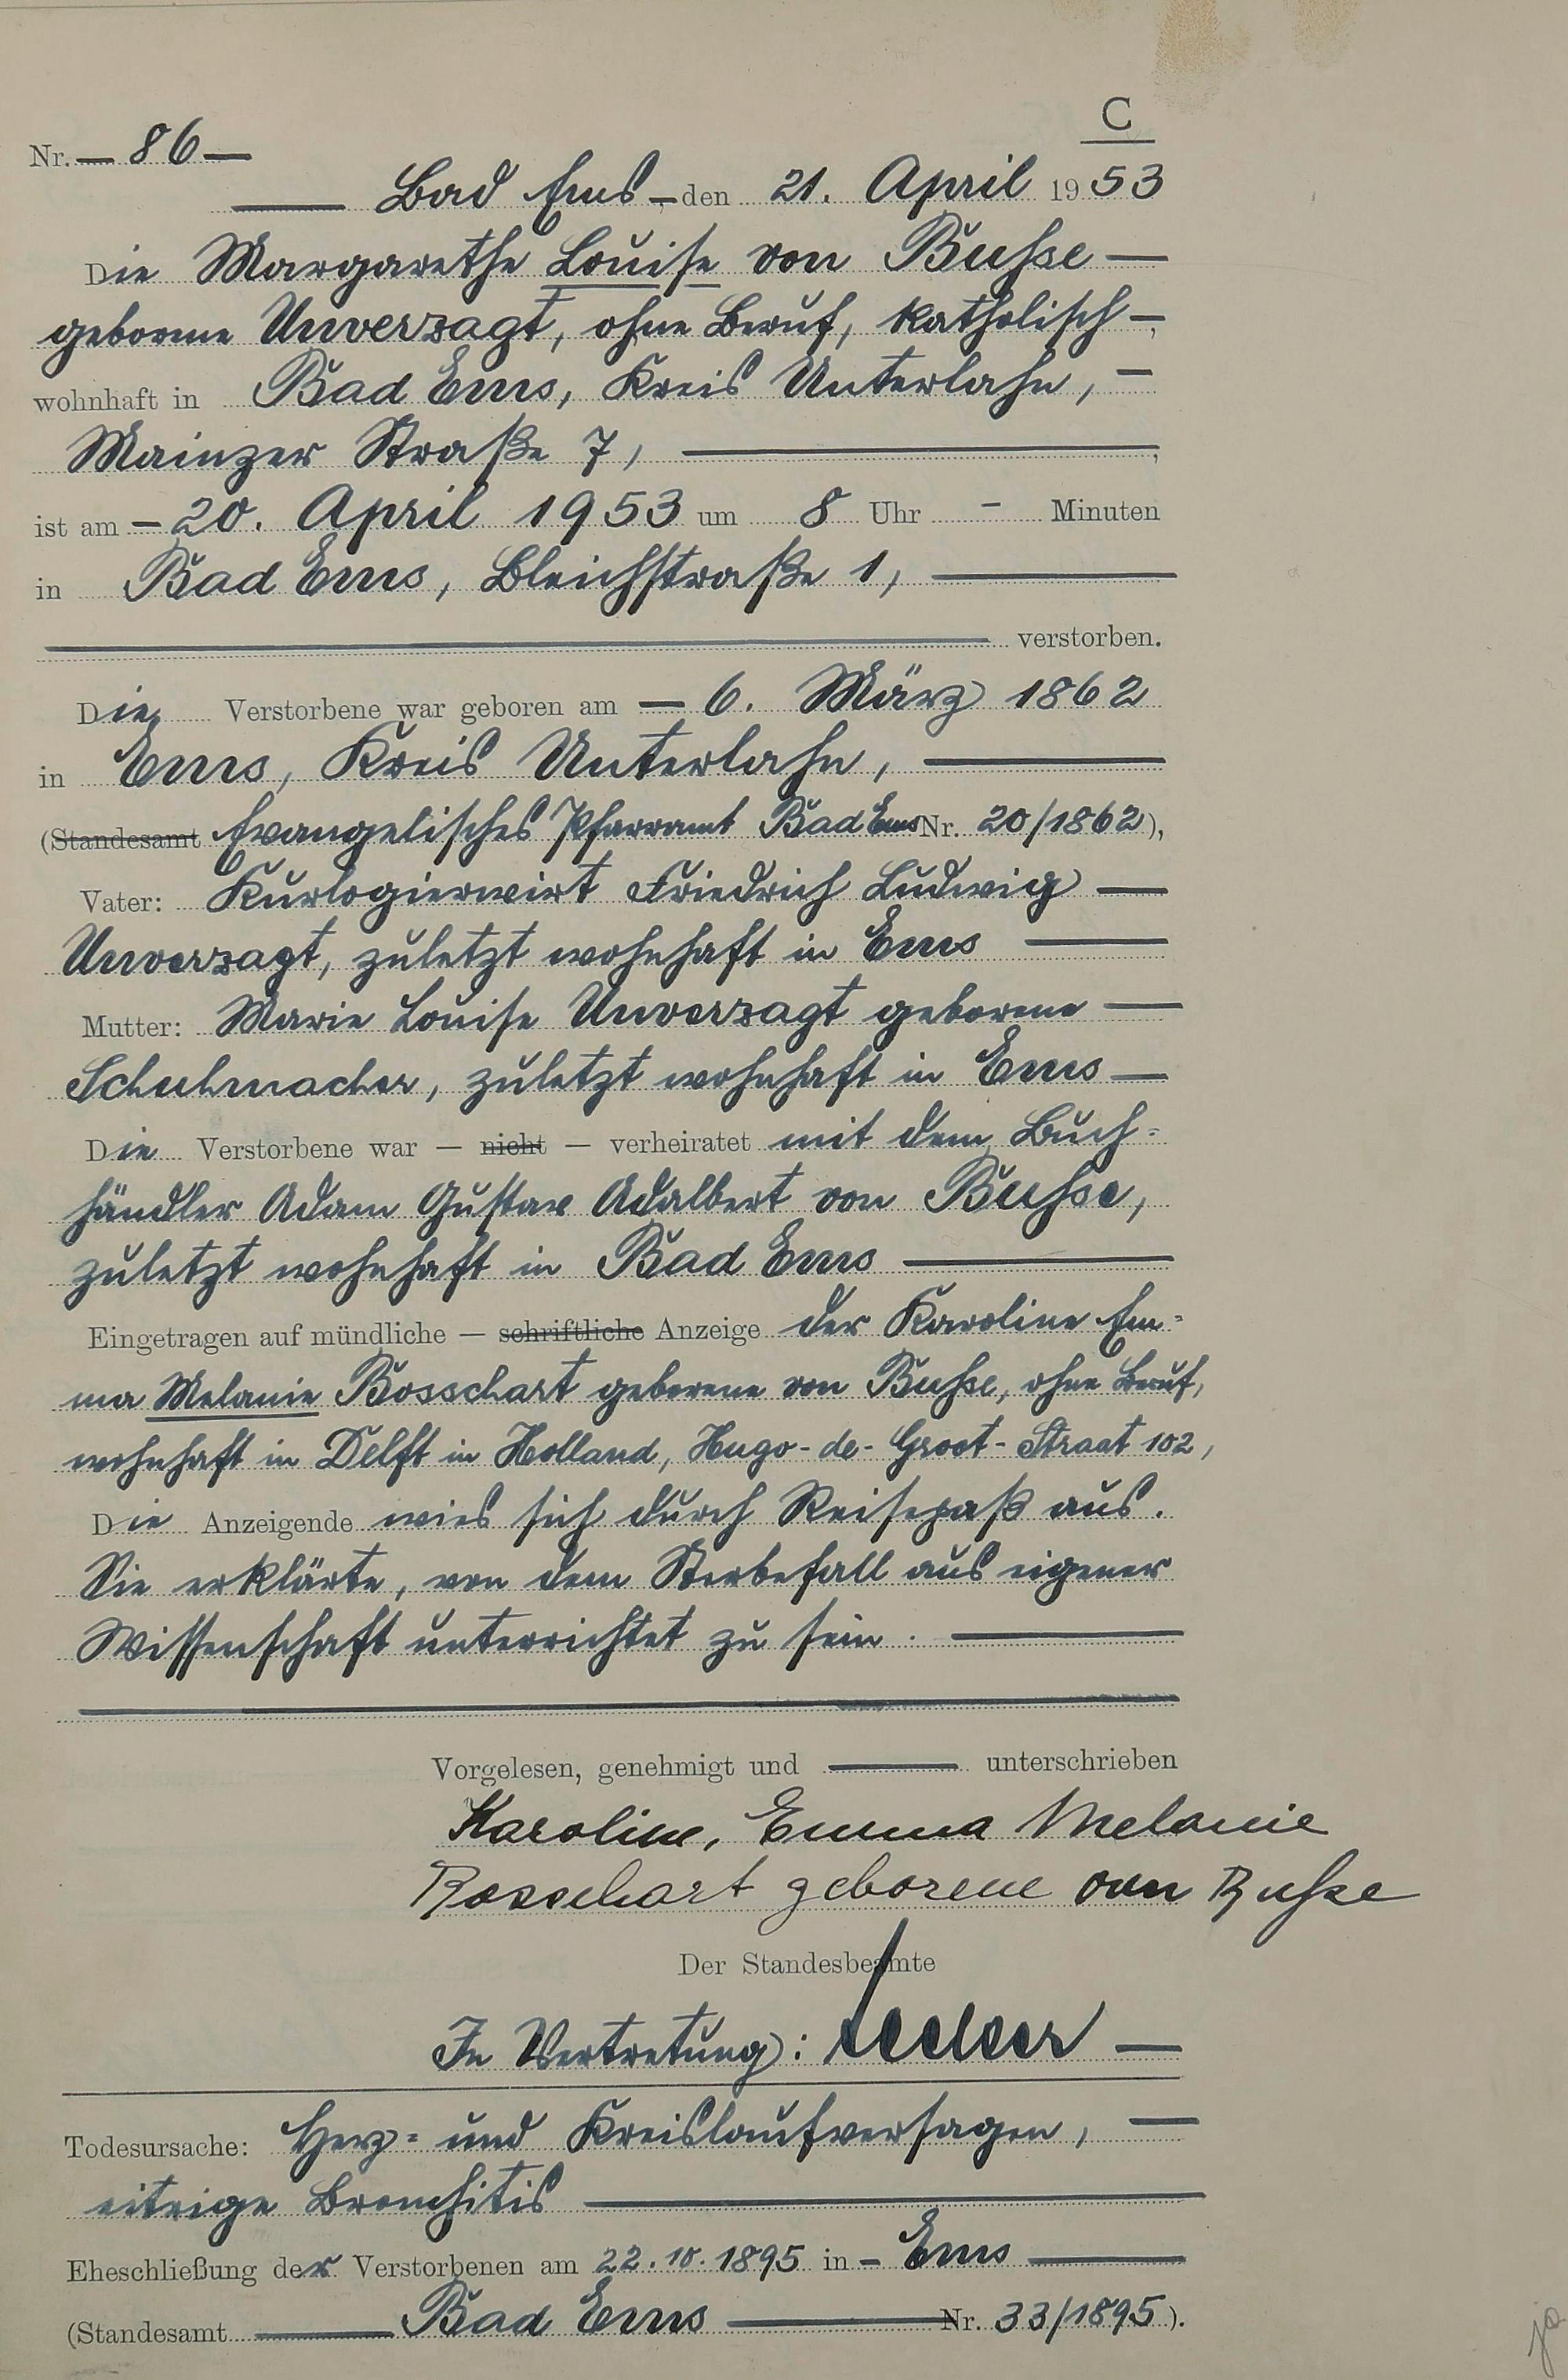 C
Nr. 86
Bad Ems, den 21. April 1953
Die Margarethe Louise von Busse
geborene Unverzagt, ohne Beruf, katholisch,
wohnhaft in Bad Ems, Kreis Unterlahn,
Mainzer Straße 7,
ist am 20. April 1953 um 8 Uhr - Minuten
in Bad Ems, Bleichstraße 1,
verstorben.
Die Verstorbene war geboren am 6. März 1862
in Ems, Kreis Unterlahn,
(Standesamt Evangelisches Pfarramt Bad Ems Nr. 20/1862),
Vater: Kurlogierwirt Friedrich Ludwig
Unverzagt, zuletzt wohnhaft in Ems
Mutter: Marie Louise Unverzagt geborene
Schuhmacher, zuletzt wohnhaft in Ems
Die Verstorbene war — nicht — verheiratet mit dem Buch-
händler Adam Gustav Adalbert von Busse,
zuletzt wohnhaft in Bad Ems
Eingetragen auf mündliche — schriftliche Anzeige der Karoline Em-
ma Melanie Bosschart geborene von Busse, ohne Beruf,
wohnhaft in Delft in Holland, Hugo-de-Groot-Straat 102,
Die Anzeigende wies sich durch Reisepaß aus.
Sie erklärte, von dem Sterbefall aus eigener
Wissenschaft unterrichtet zu sein.
Vorgelesen, genehmigt und unterschrieben
Karoline, Emma Melanie
Bosschart geborene von Busse
Der Standesbeamte
In Vertretung:
Todesursache: Herz- und Kreislaufversagen,
eitrige Bronchitis
Eheschließung der Verstorbenen am 22.10.1895 in - Ems
(Standesamt Bad Ems Nr. 33/1895).